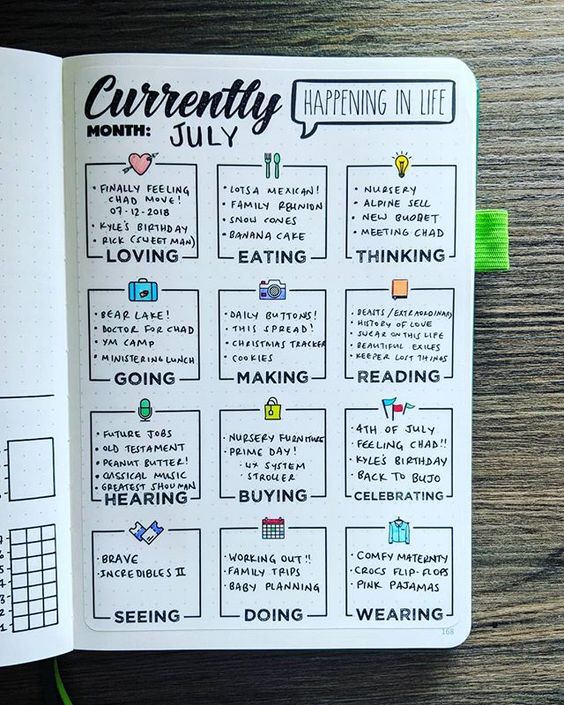 Currently
HAPPENING IN LIFE
MONTH: JULY
• FINALLY FEELING
CHAD MOVE!
07-12-2018
• KYLE'S BIRTHDAY
• RICK (SWEET MAN)
LOVING
• LOTSA MEXICAN!
• FAMILY REUNION
• SNOW CONES
• BANANA CAKE
EATING
• NURSERY
• ALPINE SELL
• NEW BUDGET
• MEETING CHAD
THINKING
• BEAR LAKE!
• DOCTOR FOR CHAD
• YM CAMP
• MINISTERING LUNCH
GOING
• DAILY BUTTONS!
• THIS SPREAD!
• CHRISTMAS TRACKER
• COOKIES
MAKING
• BEASTS/EXTRAORDINARY
• HISTORY OF LOVE
• SUGAR ON THIS LIFE
• BEAUTIFUL EXILES
• KEEPER LOST THINGS
READING
• FUTURE JOBS
• OLD TESTAMENT
• PEANUT BUTTER!
• CLASSICAL MUSIC
• GREATEST SHOWMAN
HEARING
• NURSERY FURNITURE
• PRIME DAY!
• 4X SYSTEM
STROLLER
BUYING
• 4TH OF JULY
• FEELING CHAD!!
• KYLE'S BIRTHDAY
• BACK TO BUJO
CELEBRATING
• BRAVE
• INCREDIBLES II
SEEING
• WORKING OUT!!
• FAMILY TRIPS
• BABY PLANNING
DOING
• COMFY MATERNTY
• CROCS FLIP-FLOPS
• PINK PAJAMAS
WEARING
168